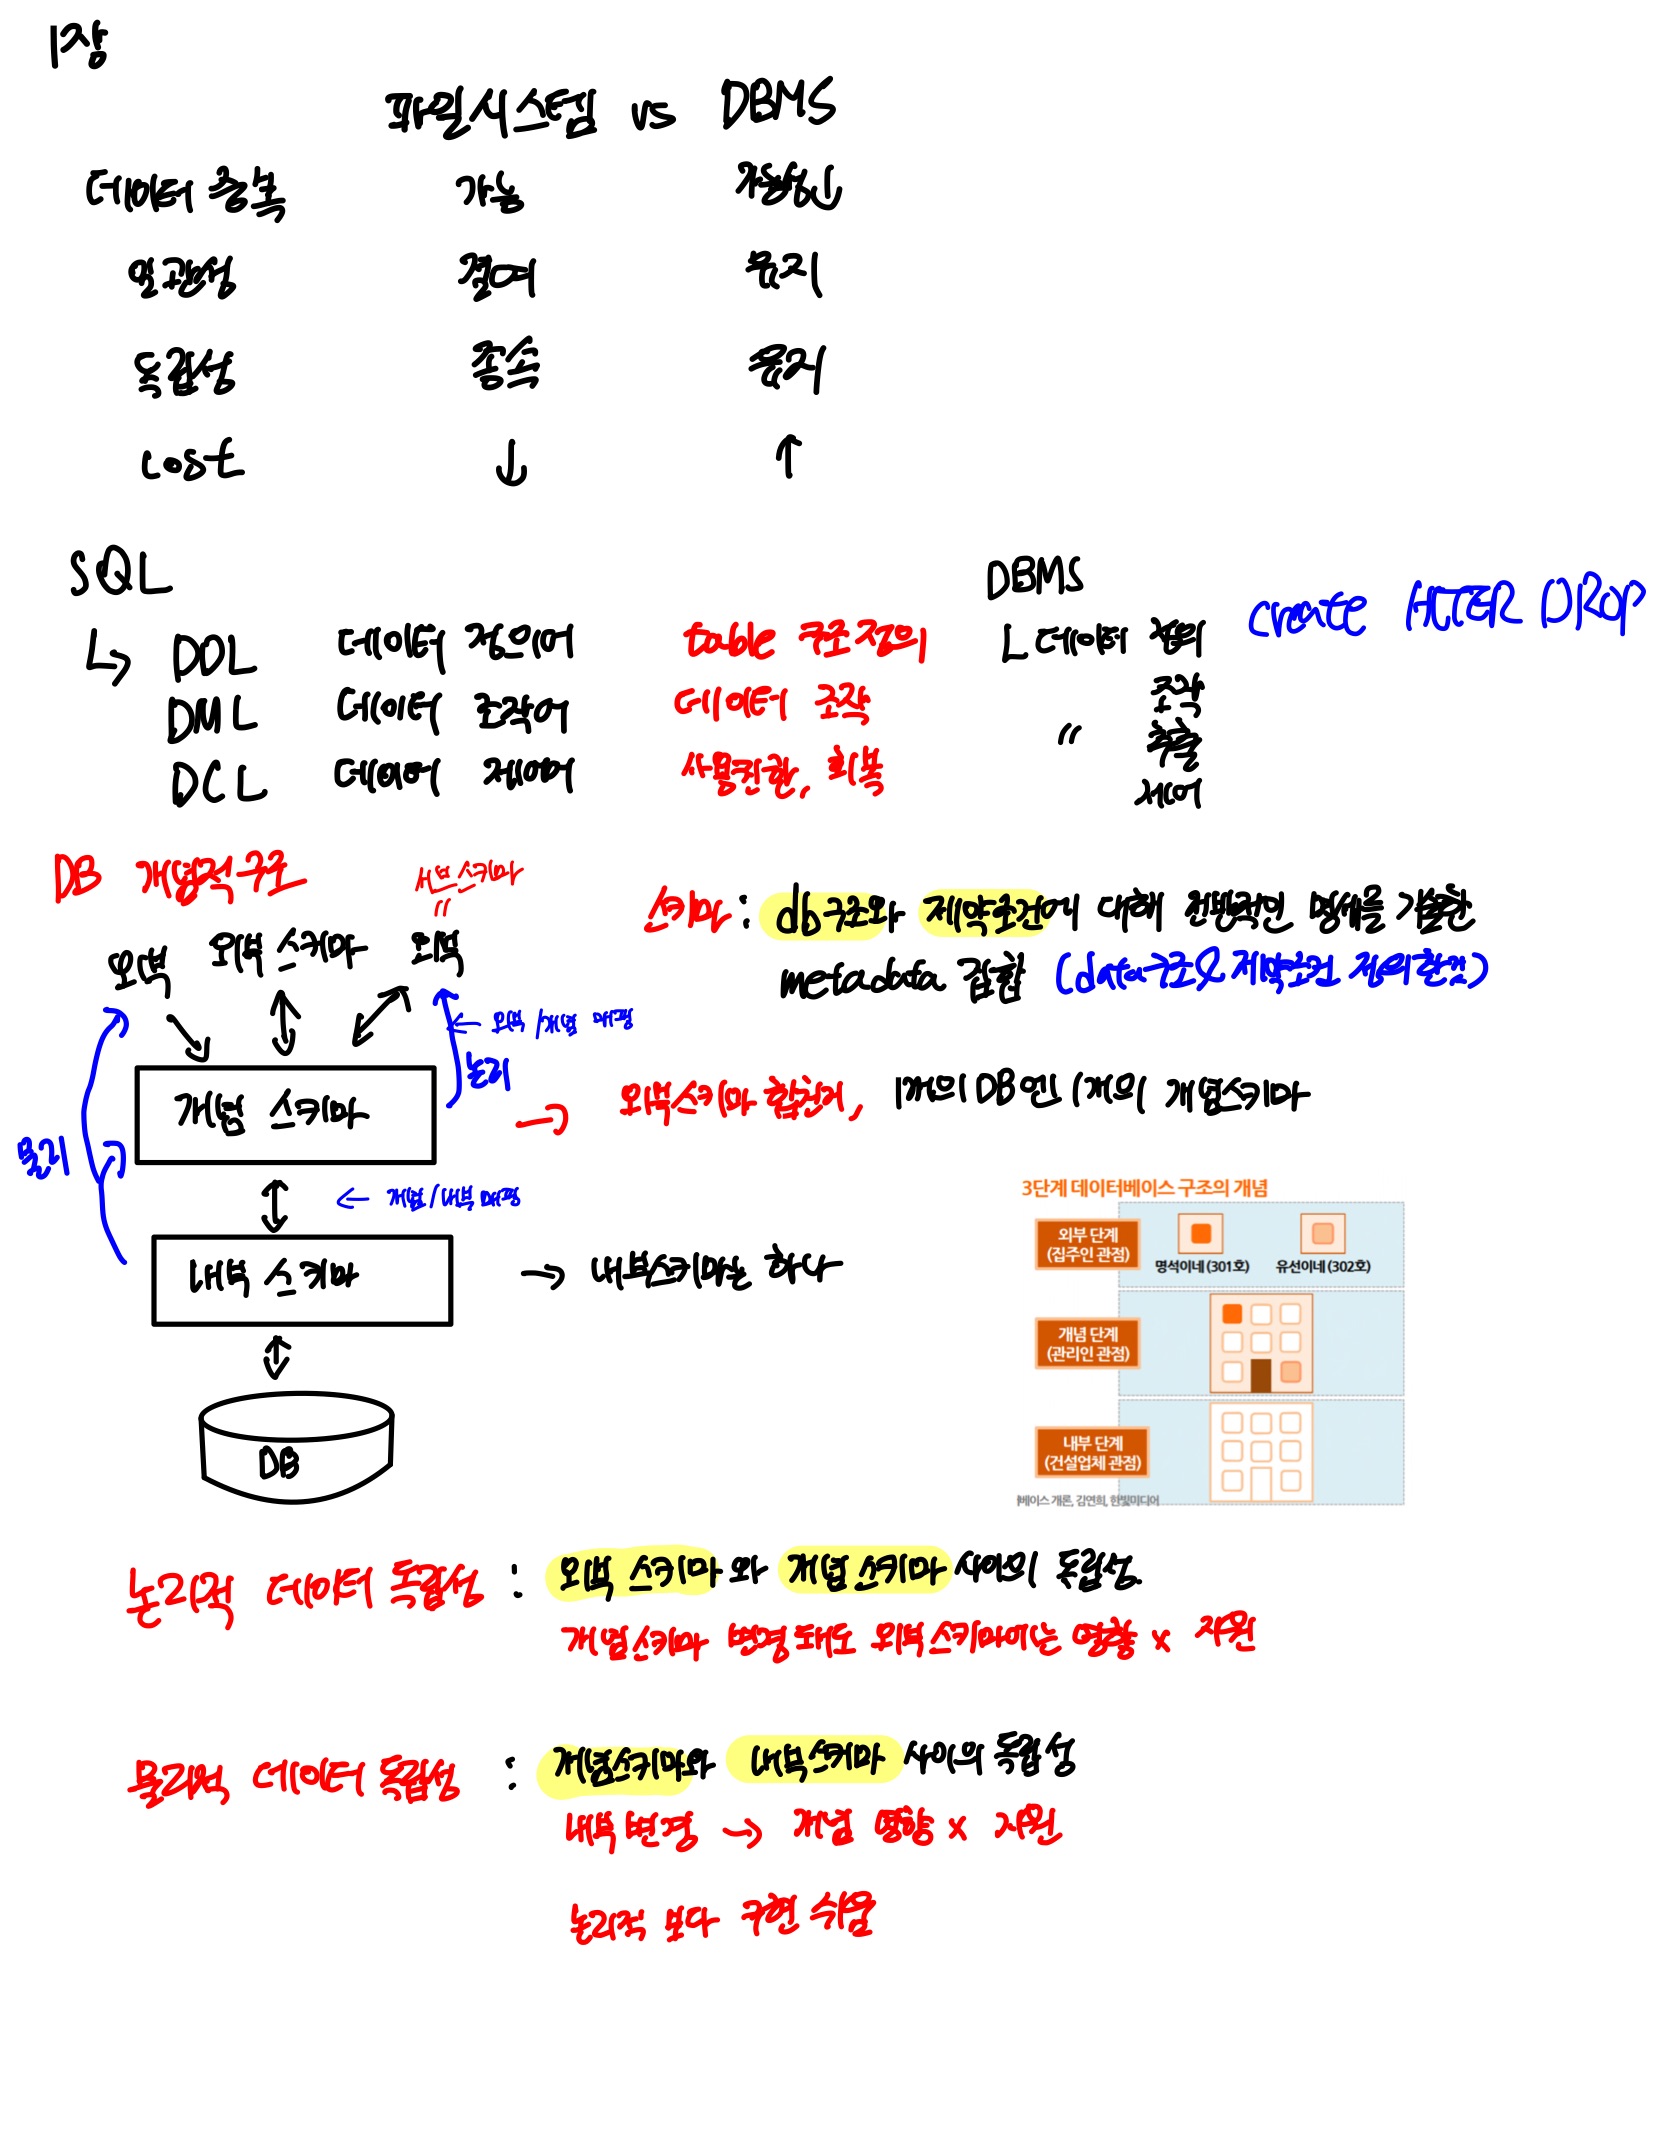 1장
파일시스템 vs DBMS
데이터 중복 가능 가능성↓
일관성 결여 유지
독립성 종속 유지
cost ↓ ↑
SQL
↳ DDL 데이터 정의어 table 구조정의
DML 데이터 조작어 데이터 조작
DCL 데이터 제어어 사용권한, 회복
DBMS
ㄴ 데이터 정의 create ALTER DROP
조작
〃 추출
제어
DB 개념적구조
서브스키마
〃
외부 외부 스키마 외부
← 외부/개념 매핑
논리
개념 스키마
물리
← 개념/내부 매핑
내부 스키마
DB
스키마 : db구조와 제약조건에 대해 전반적인 명세를 기술한
metadata 집합 (data구조&제약조건 정의한것)
→ 외부스키마 합친거, 1개의 DB엔 1개의 개념스키마
→ 내부스키마는 하나
3단계 데이터베이스 구조의 개념
외부 단계
(집주인 관점)
명석이네 (301호) 유선이네 (302호)
개념 단계
(관리인 관점)
내부 단계
(건설업체 관점)
베이스 개론, 김연희, 한빛미디어
논리적 데이터 독립성 : 외부 스키마와 개념 스키마 사이의 독립성.
개념스키마 변경돼도 외부스키마에는 영향 x 지원
물리적 데이터 독립성 : 개념스키마와 내부스키마 사이의 독립성
내부변경 → 개념 영향 x 지원
논리적 보다 구현 쉬움